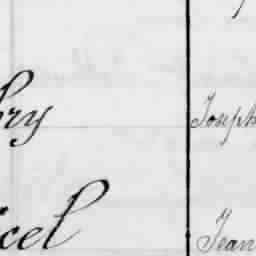 bry Joseph
icel Jean